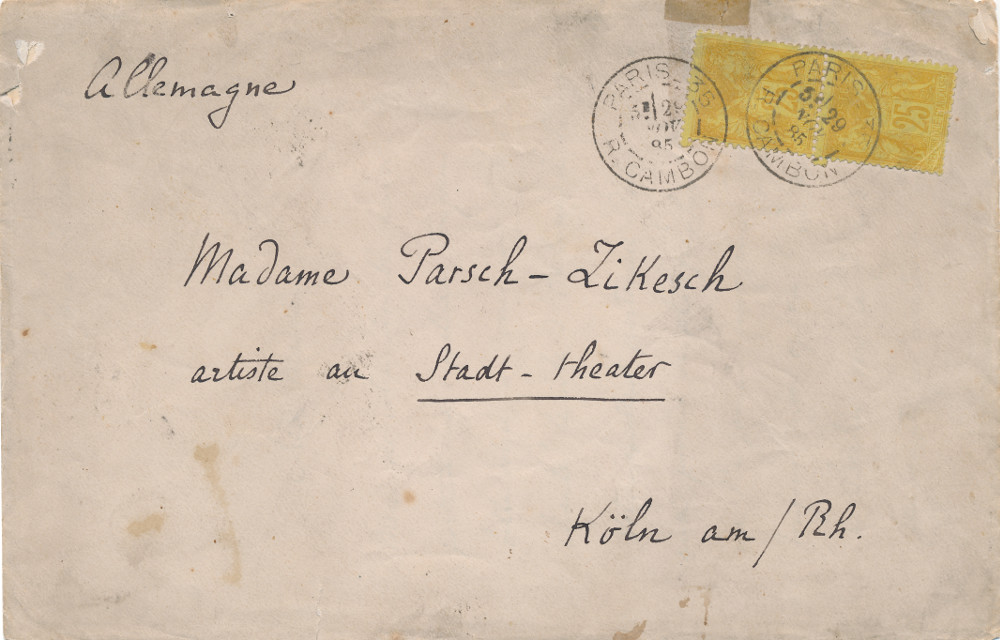 Allemagne
PARIS 35
5E 29
NOV
85
R. CAMBON
PARIS
5E 29
NOV
85
R. CAMBON
25
25
Madame Parsch-Zikesch
artiste au Stadt-theater
Köln am/Rh.